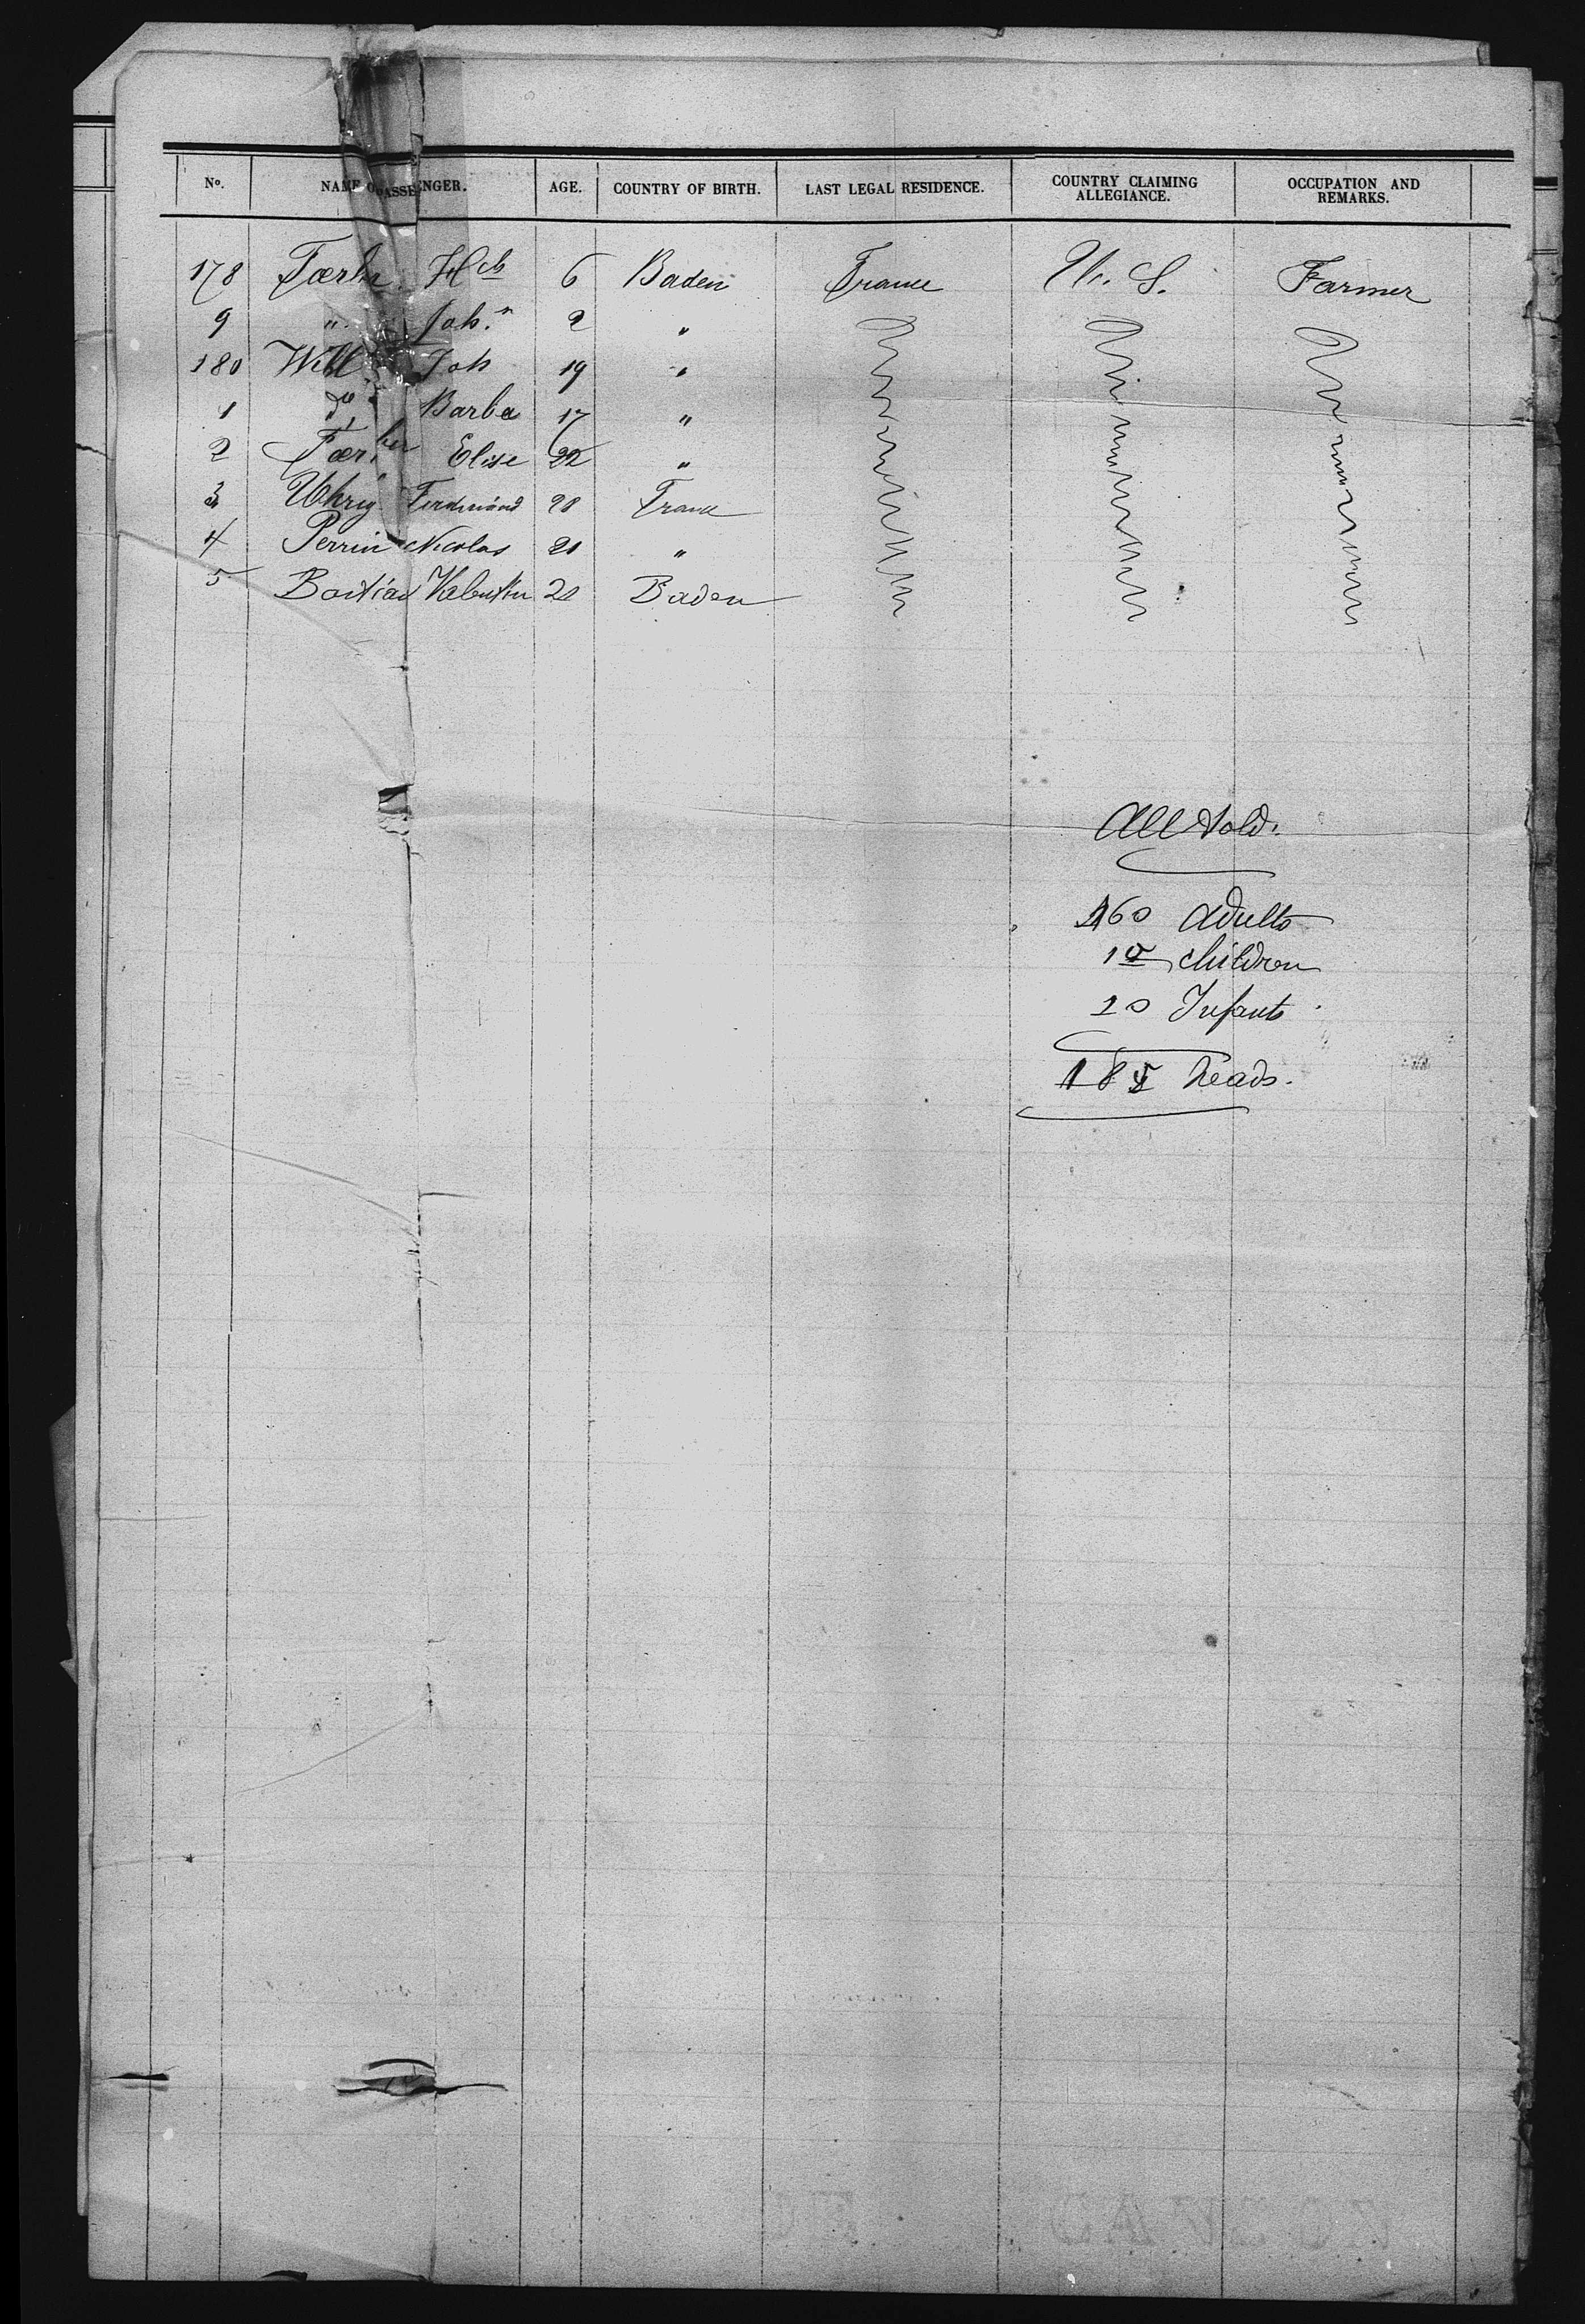 No. NAME O PASSENGER. AGE. COUNTRY OF BIRTH. LAST LEGAL RESIDENCE. COUNTRY CLAIMING ALLEGIANCE. OCCUPATION AND REMARKS.
178 Færber Hch 6 Baden France U. S. Farmer
9 " Joh.n 2 "
180 Will Joh 19 "
1 do Barba 17 "
2 Færber Elise 22 "
3 Uhrig Ferdinand 28 France
4 Perrin Nicolas 21 "
5 Bastian Valentin 21 Baden
All told.
160 Adults
15 children
10 Infants
185 heads.